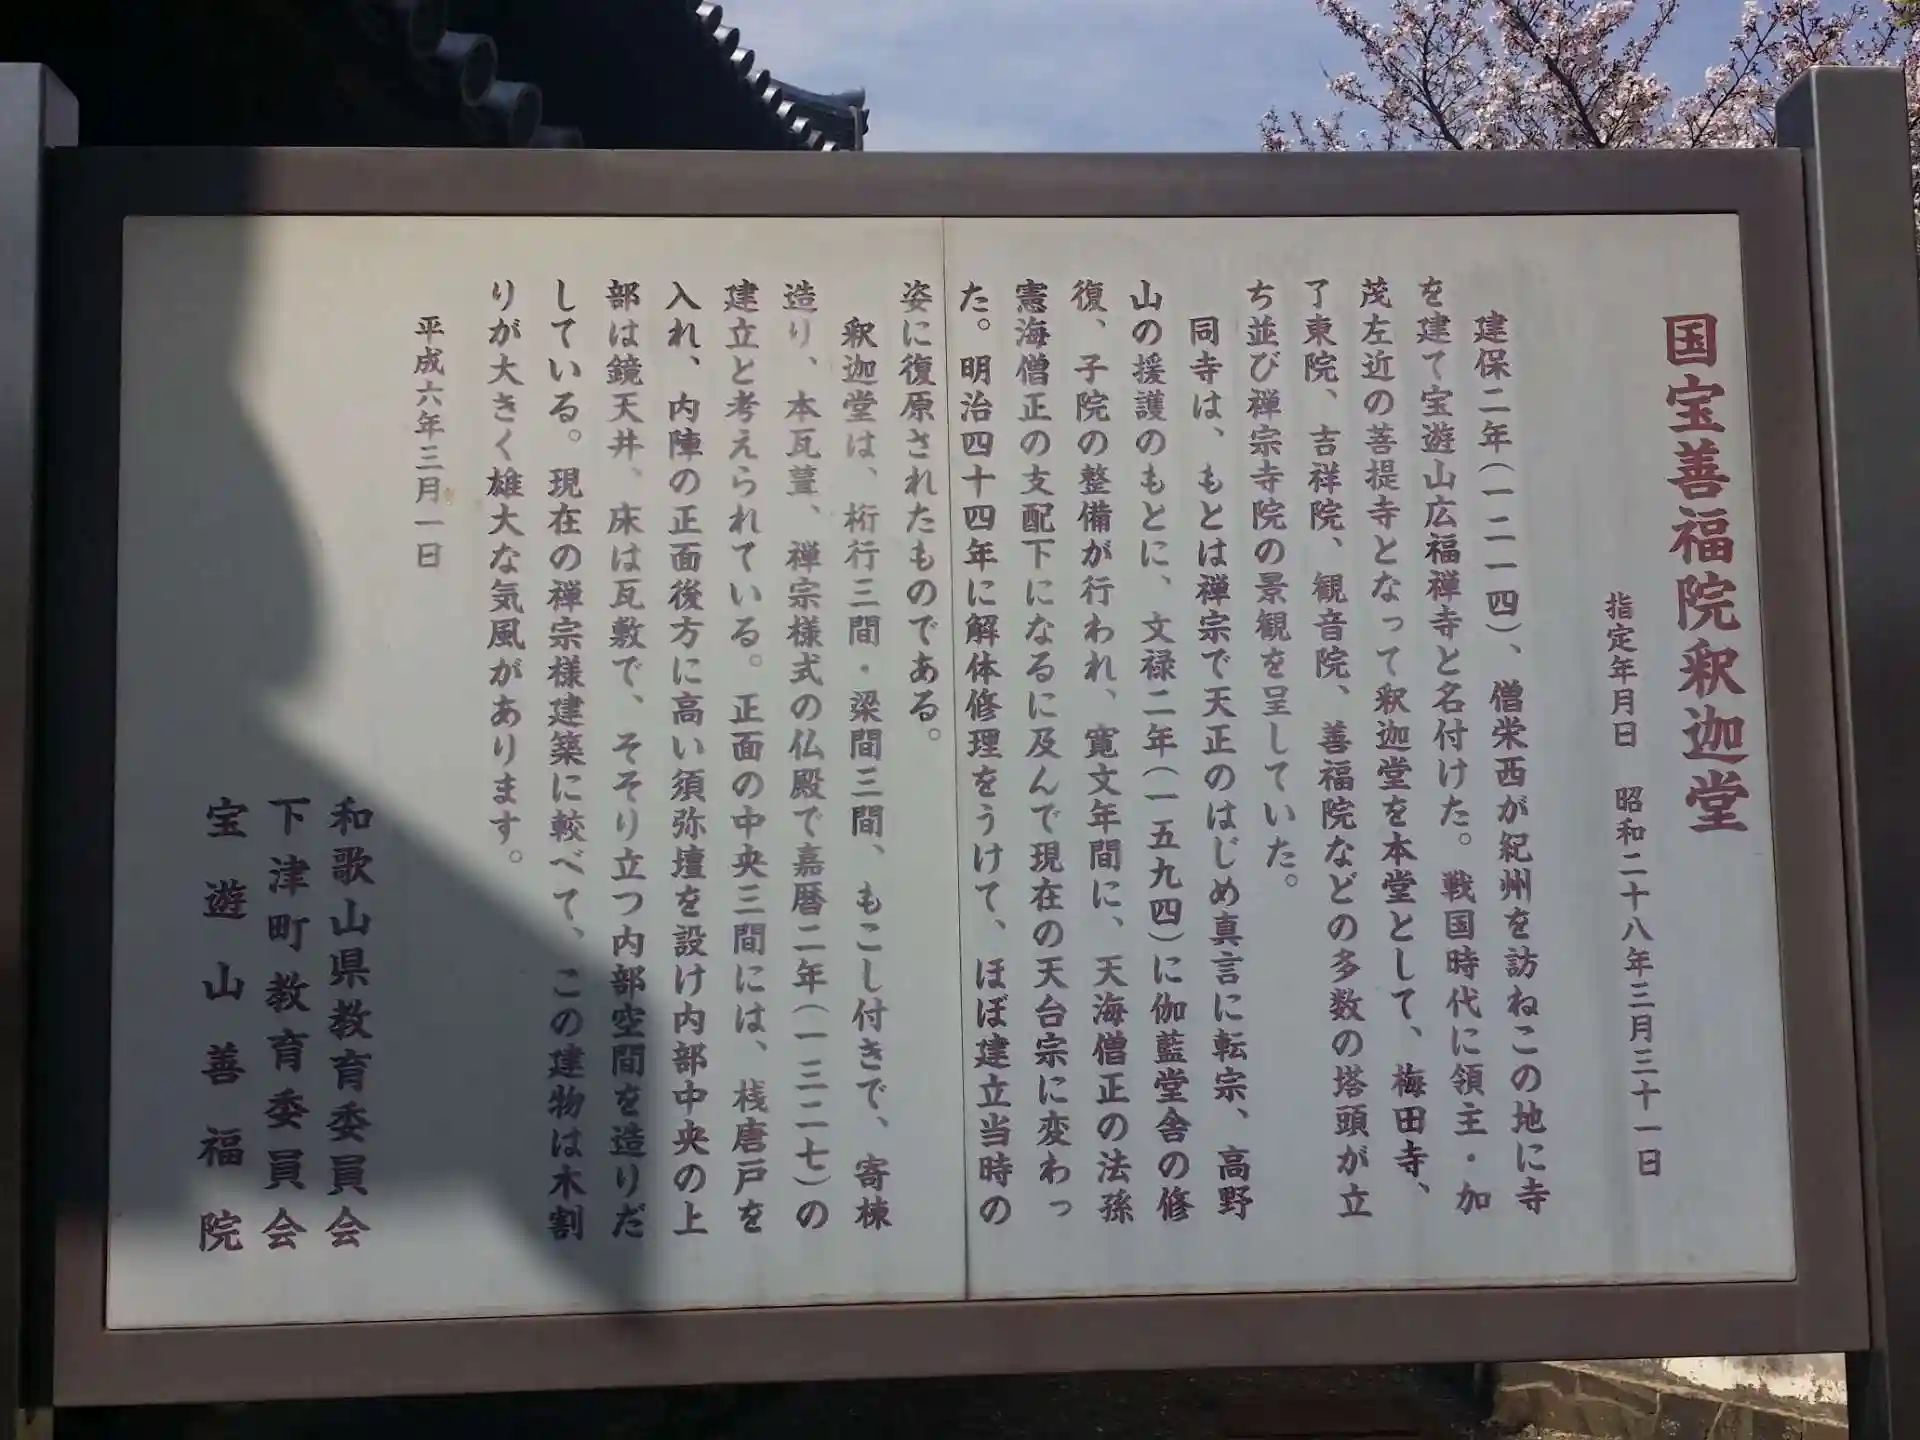 国宝善福院釈迦堂
指定年月日　昭和二十八年三月三十一日
建保二年（一二一四）、僧栄西が紀州を訪ねこの地に寺
を建て宝遊山広福禅寺と名付けた。戦国時代に領主・加
茂左近の菩提寺となって釈迦堂を本堂として、梅田寺、
了東院、吉祥院、観音院、善福院などの多数の塔頭が立
ち並び禅宗寺院の景観を呈していた。
同寺は、もとは禅宗で天正のはじめ真言に転宗、高野
山の援護のもとに、文禄二年（一五九四）に伽藍堂舎の修
復、子院の整備が行われ、寛文年間に、天海僧正の法孫
憲海僧正の支配下になるに及んで現在の天台宗に変わっ
た。明治四十四年に解体修理をうけて、ほぼ建立当時の
姿に復原されたものである。
釈迦堂は、桁行三間・梁間三間、もこし付きで、寄棟
造り、本瓦葺、禅宗様式の仏殿で嘉暦二年（一三二七）の
建立と考えられている。正面の中央三間には、桟唐戸を
入れ、内陣の正面後方に高い須弥壇を設け内部中央の上
部は鏡天井、床は瓦敷で、そそり立つ内部空間を造りだ
している。現在の禅宗様建築に較べて、この建物は木割
りが大きく雄大な気風があります。
平成六年三月一日
和歌山県教育委員会
下津町教育委員会
宝遊山善福院